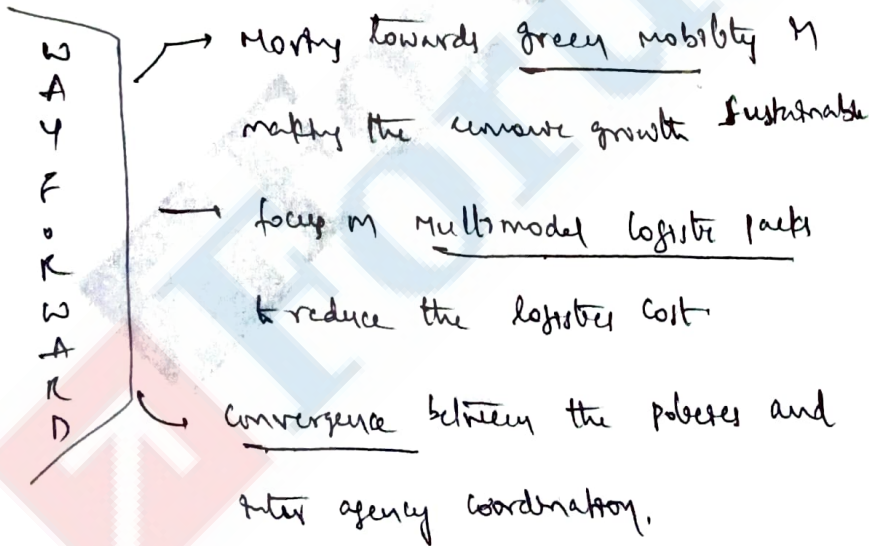 WAY FORWARD
Moving towards green mobility in
making the growth sustainable
focus on Multimodel logistic parks
to reduce the logistics cost
convergence between the policies and
inter agency coordination.